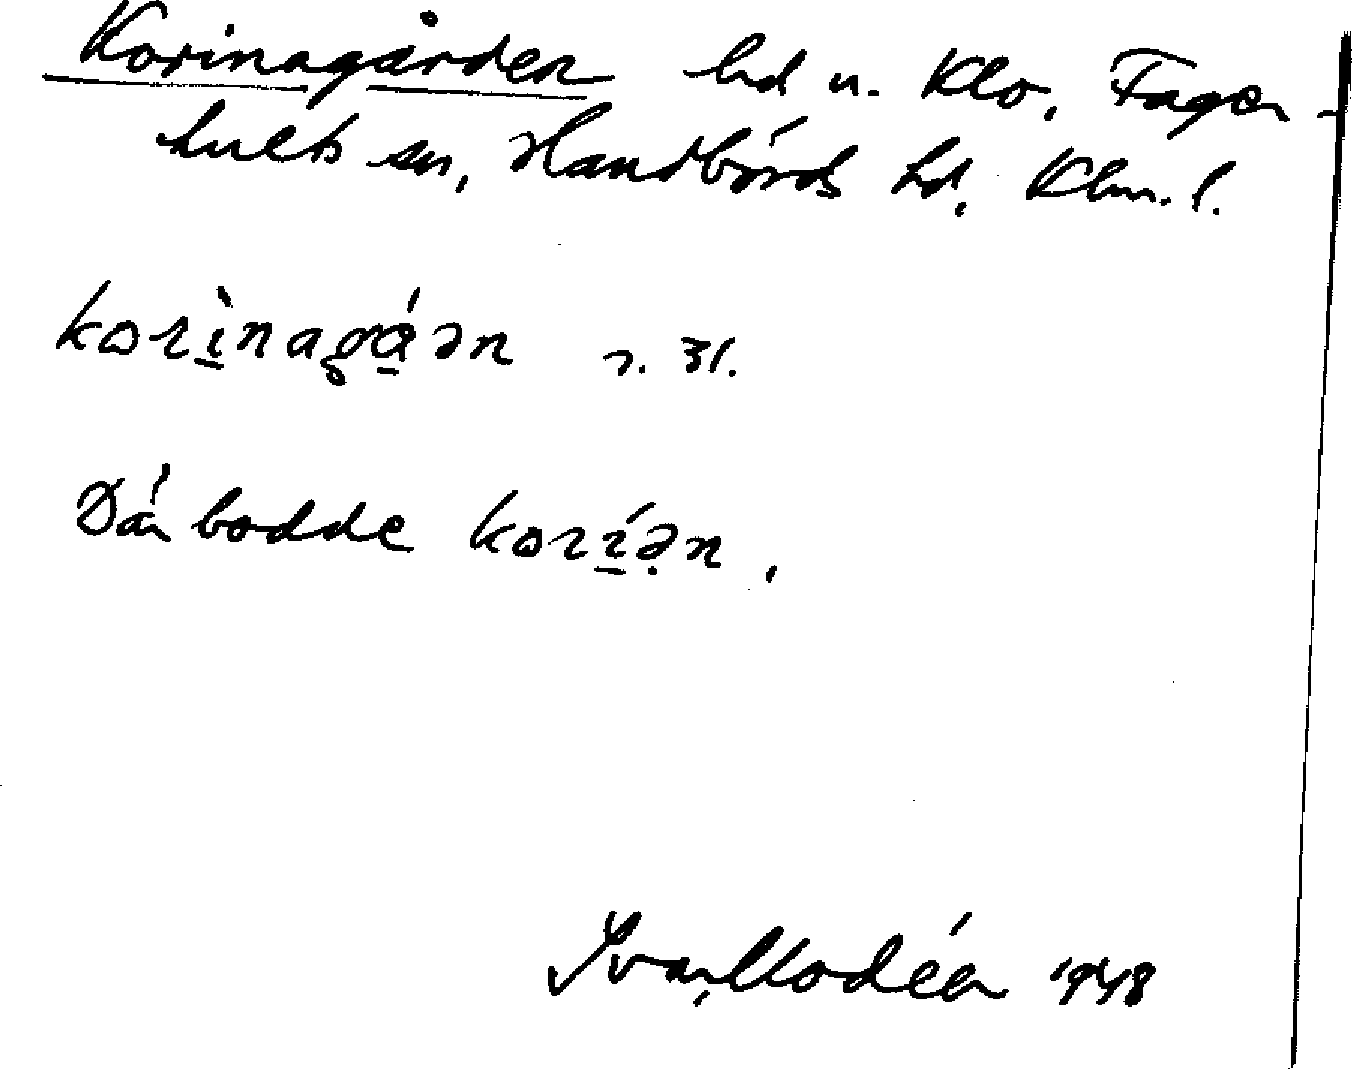 Korinagården hd u. Klo, Fager-
hults sn, Handbörds hd, Klm. l.
korìnagǻən s. 31.
Där bodde koríən.
Ivar Modéer 1948